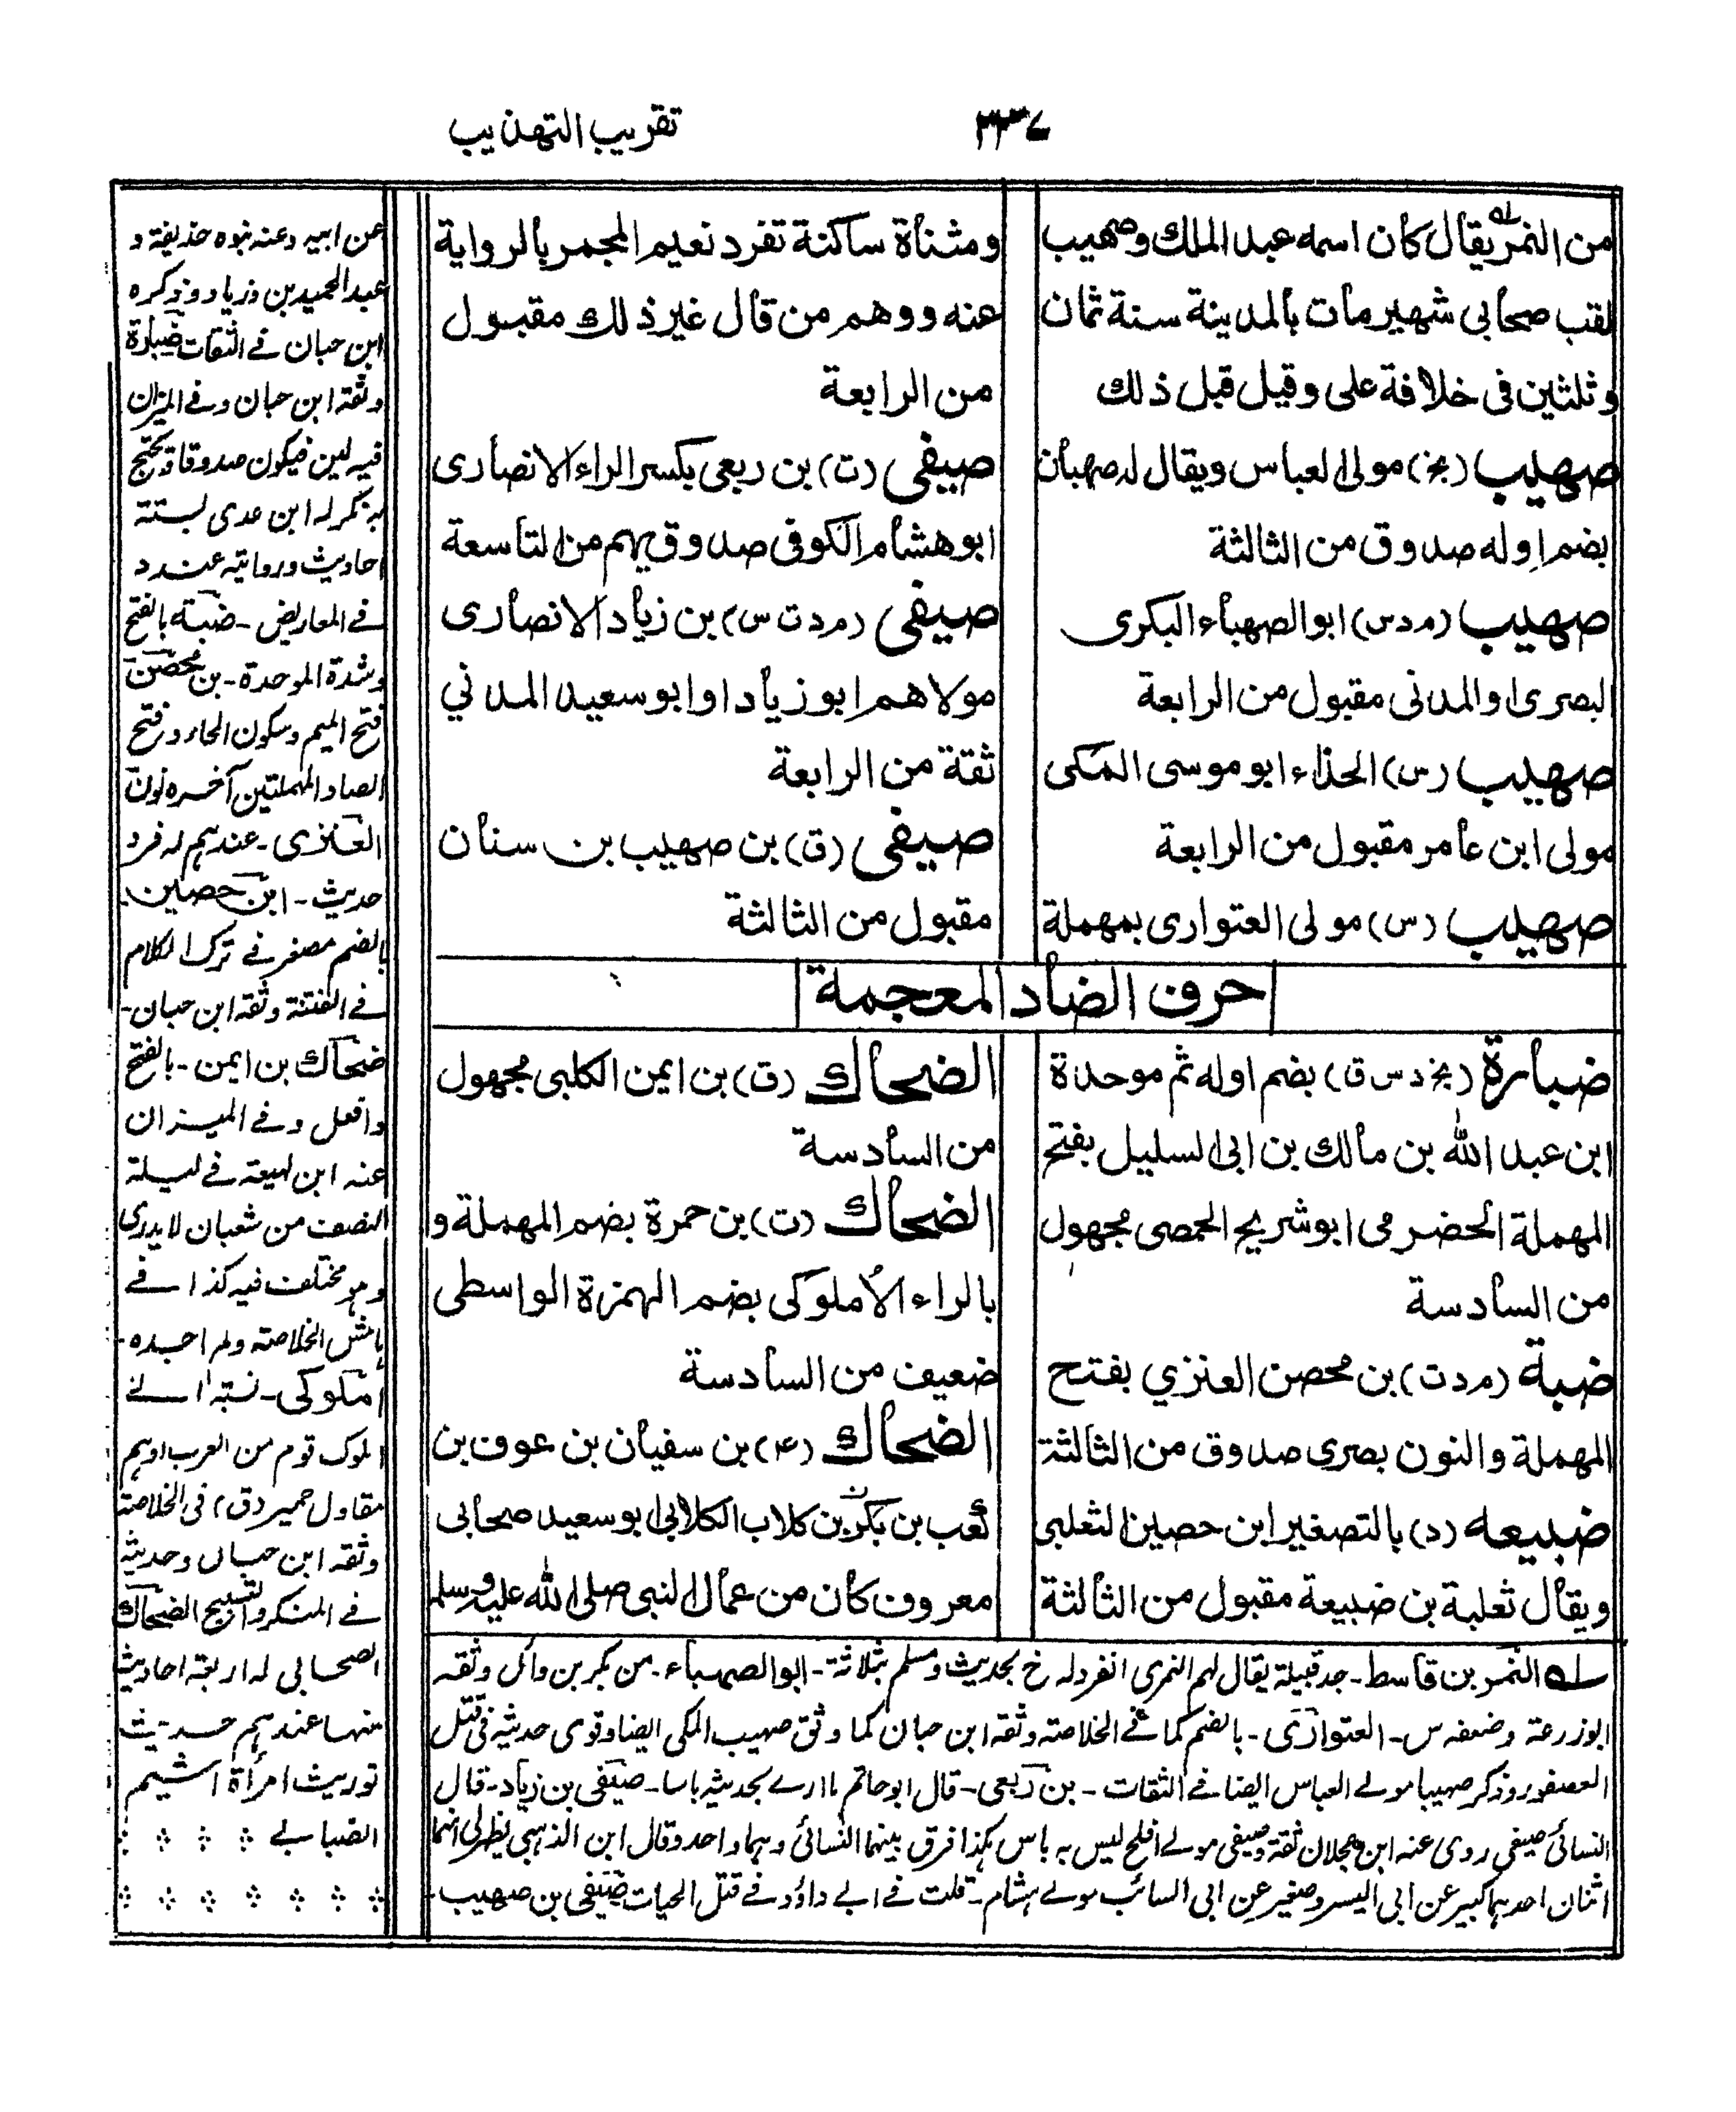 تقريب التهذيب
٢٣٧
من النمر يقال كان اسمه عبد الملك وصهيب
لقب صحابي شهير مات بالمدينة سنة ثمان
وثلثين في خلافة على وقيل قبل ذلك
صهيب (بخ) مولى العباس ويقال له صهبان
بضم اوله صدوق من الثالثة
صهيب (م د س) ابو الصهباء البكرى
البصرى او المدنى مقبول من الرابعة
صهيب (س) الحذاء ابو موسى المكى
مولى ابن عامر مقبول من الرابعة
صهيب (س) مولى العتوارى بمهملة
ومثناة ساكنة تفرد نعيم المجمر بالرواية
عنه ووهم من قال غير ذلك مقبول
من الرابعة
صيفى (ت) بن ربعى بكسر الراء الانصارى
ابو هشام الكوفى صدوق يهم من التاسعة
صيفى (م د ت س) بن زياد الانصارى
مولاهم ابو زياد او ابو سعيد المدني
ثقة من الرابعة
صيفى (ق) بن صهيب بن سنان
مقبول من الثالثة
حرف الضاد المعجمة
ضبارة (بخ د س ق) بضم اوله ثم موحدة
ابن عبد الله بن مالك بن ابى السليل بفتح
المهملة الحضرمى ابو شريح الحمصى مجهول
من السادسة
ضبة (م د ت) بن محصن العنزي بفتح
المهملة والنون بصرى صدوق من الثالثة
ضبيعه (د) بالتصغير ابن حصين الثعلبى
ويقال ثعلبة بن ضبيعة مقبول من الثالثة
الضحاك (ق) بن ايمن الكلبى مجهول
من السادسة
الضحاك (ت) بن حمرة بضم المهملة و
بالراء الأملوكى بضم الهمزة الواسطى
ضعيف من السادسة
الضحاك (٤) بن سفيان بن عوف بن
كعب بن بكر بن كلاب الكلابى ابو سعيد صحابى
معروف كان من عمال النبى صلى الله عليه وسلم
النمر بن قاسط ـ جد قبيلة يقال لهم النمرى انفرد له خ بحديث ومسلم بثلاثة ـ ابو الصهباء ـ من بكر بن وائل وثقه
ابو زرعة وضعفه س ـ العتوارى ـ بالضم كما فے الخلاصة وثقه ابن حبان كما وثق صهيب المكى ايضا وقوى حديثه فى قتل
العصفور وذكر صهيبا مولے العباس ايضا فے الثقات ـ بن ربعى ـ قال ابو حاتم ما ارے بحديثه باسا ـ صيفى بن زياد ـ قال
النسائى صيفى روى عنه ابن عجلان ثقة وصيفى مولے افلح ليس به باس هكذا فرق بينهما النسائى وهما واحد وقال ابن الذهبى يظهر لى انهما
اثنان احدهما كبير عن ابى اليسر وصغير عن ابى السائب مولے هشام ـ قلت فے ابے داؤد فے قتل الحيات صيفى بن صهيب ـ
عن ابيه وعنه بنوه حذيفة و
عبد الحميد بن زياد وذكره
ابن حبان فے الثقات ضبارة
وثقه ابن حبان وفے الميزان
فيه لين فيكون صدوقا ويحتج
به ذكر له ابن عدى لستة
احاديث وروايته عند د
فے المعاريض ـ ضبة بالفتح
وشدة الموحدة ـ بن محصن
فتح الميم وسكون الحاء وفتح
الصاد المهملتين آخره نون
العنزى ـ عندهم له فرد
حديث ـ ابن حصين
بالضم مصغر فے ترك الكلام
فے الفتنة وثقه ابن حبان ـ
ضحاك بن ايمن ـ بالفتح
وافعل وفے الميزان
عنه ابن لهيعة فے ليلة
النصف من شعبان لا يدرى
وهو مختلف فيه كذا فے
هامش الخلاصة ولم اجده ـ
املوكى ـ نسبة الے
املوك قوم من العرب او هم
مقاول حمير (ق) فى الخلاصة
وثقه ابن حبان وحديثه
فے المنكر والتسبيح الضحاك
الصحابى له اربعة احاديث
منها عندهم حديث
توريث امرأة اشيم
الضبابے